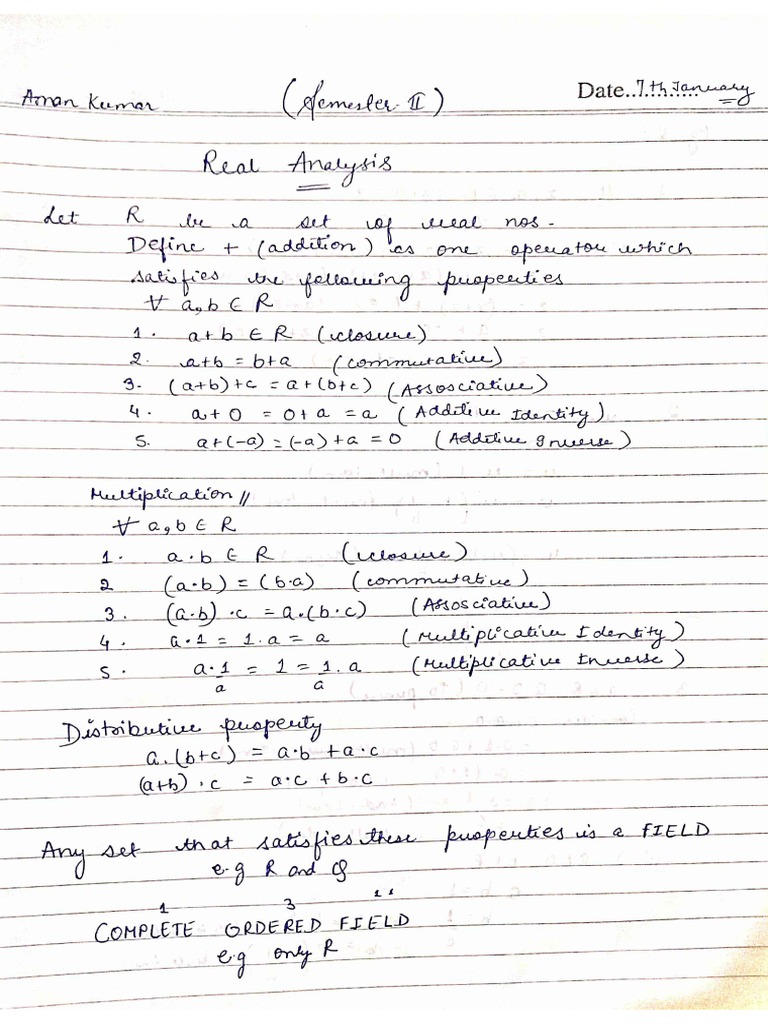 Aman Kumar (Semester-II) Date..7.th January
Real Analysis
Let R be a set of real nos.
Define + (addition) as one operator which
satisfies the following properties
∀ a,b ∈ R
1. a+b ∈ R (closure)
2. a+b = b+a (commutative)
3. (a+b)+c = a+(b+c) (Assosciative)
4. a+0 = 0+a = a (Additive Identity)
5. a+(-a) = (-a)+a = 0 (Additive Inverse)
Multiplication //
∀ a,b ∈ R
1. a.b ∈ R (closure)
2 (a.b) = (b.a) (commutative)
3. (a.b).c = a.(b.c) (Assosciative)
4. a.1 = 1.a = a (Multiplicative Identity)
5. a.1/a = 1 = 1/a.a (Multiplicative Inverse)
Distributive property
a.(b+c) = a.b + a.c
(a+b).c = a.c + b.c
Any set that satisfies these properties is a FIELD
e.g R and Q
1 3 11
COMPLETE ORDERED FIELD
e.g only R